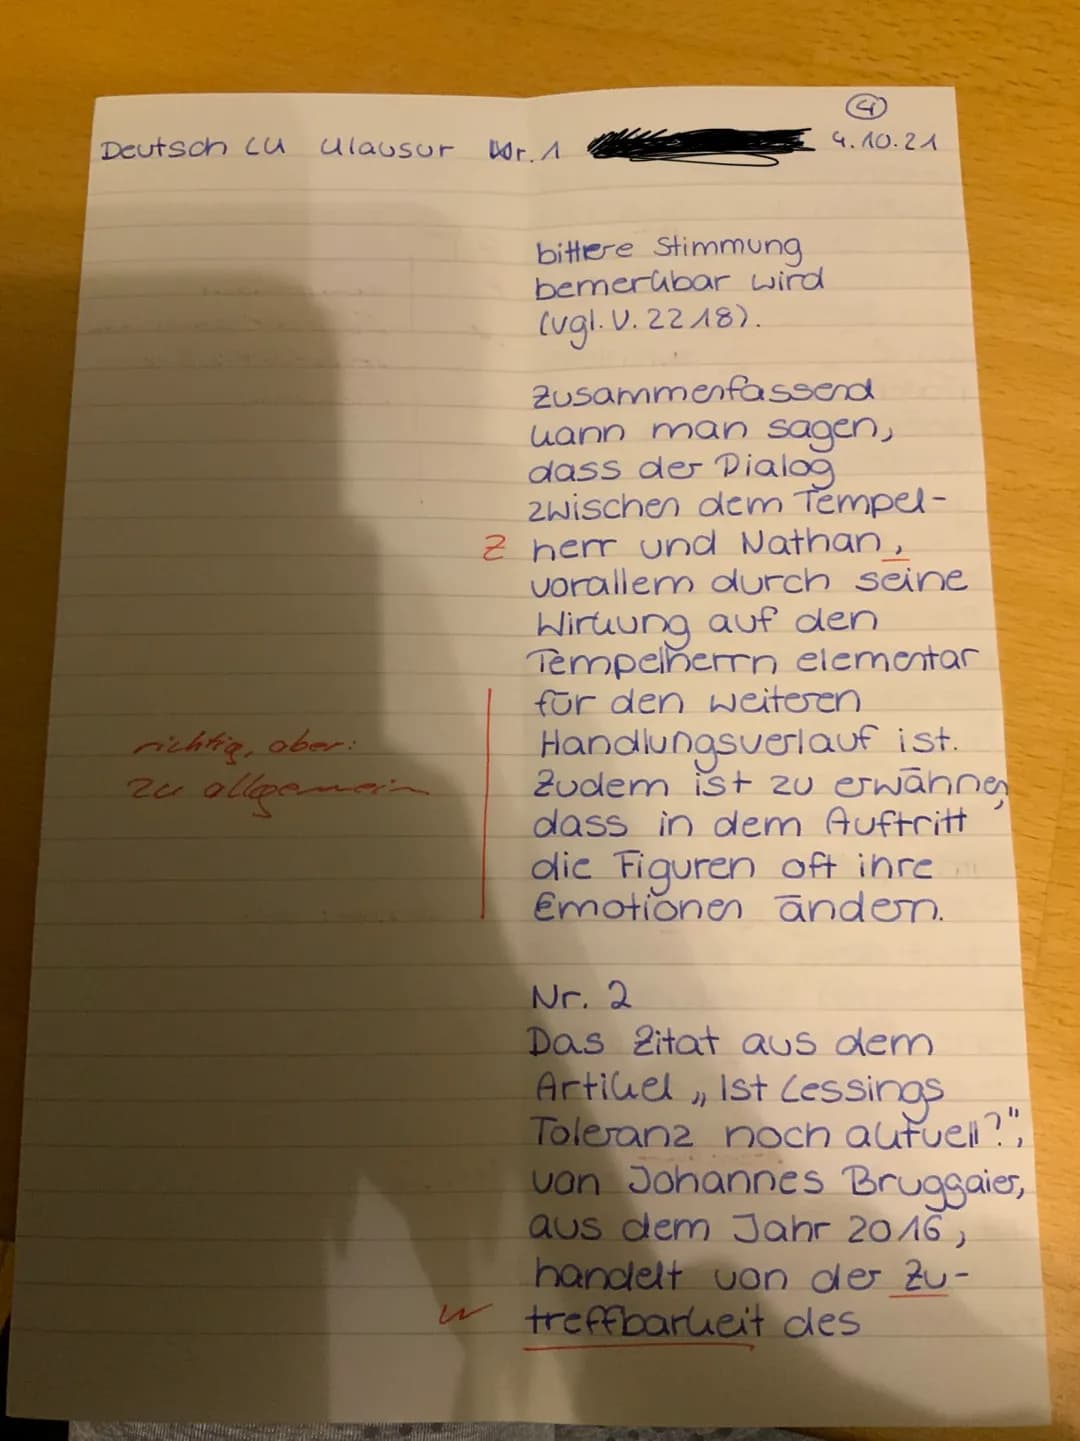 ④
Deutsch LK Klausur Nr. 1 4.10.21
bittere Stimmung
bemerkbar wird
(vgl. V. 2218).
Zusammenfassend
kann man sagen,
dass der Dialog
zwischen dem Tempel-
Z herr und Nathan,
vorallem durch seine
Wirkung auf den
Tempelherrn elementar
für den weiteren
richtig, aber: Handlungsverlauf ist.
zu allgemein Zudem ist zu erwähnen,
dass in dem Auftritt
die Figuren oft ihre
Emotionen ändern.
Nr. 2
Das Zitat aus dem
Artikel „Ist Lessings
Toleranz noch aktuell?",
von Johannes Bruggaier,
aus dem Jahr 2016,
handelt von der Zu-
W treffbarkeit des